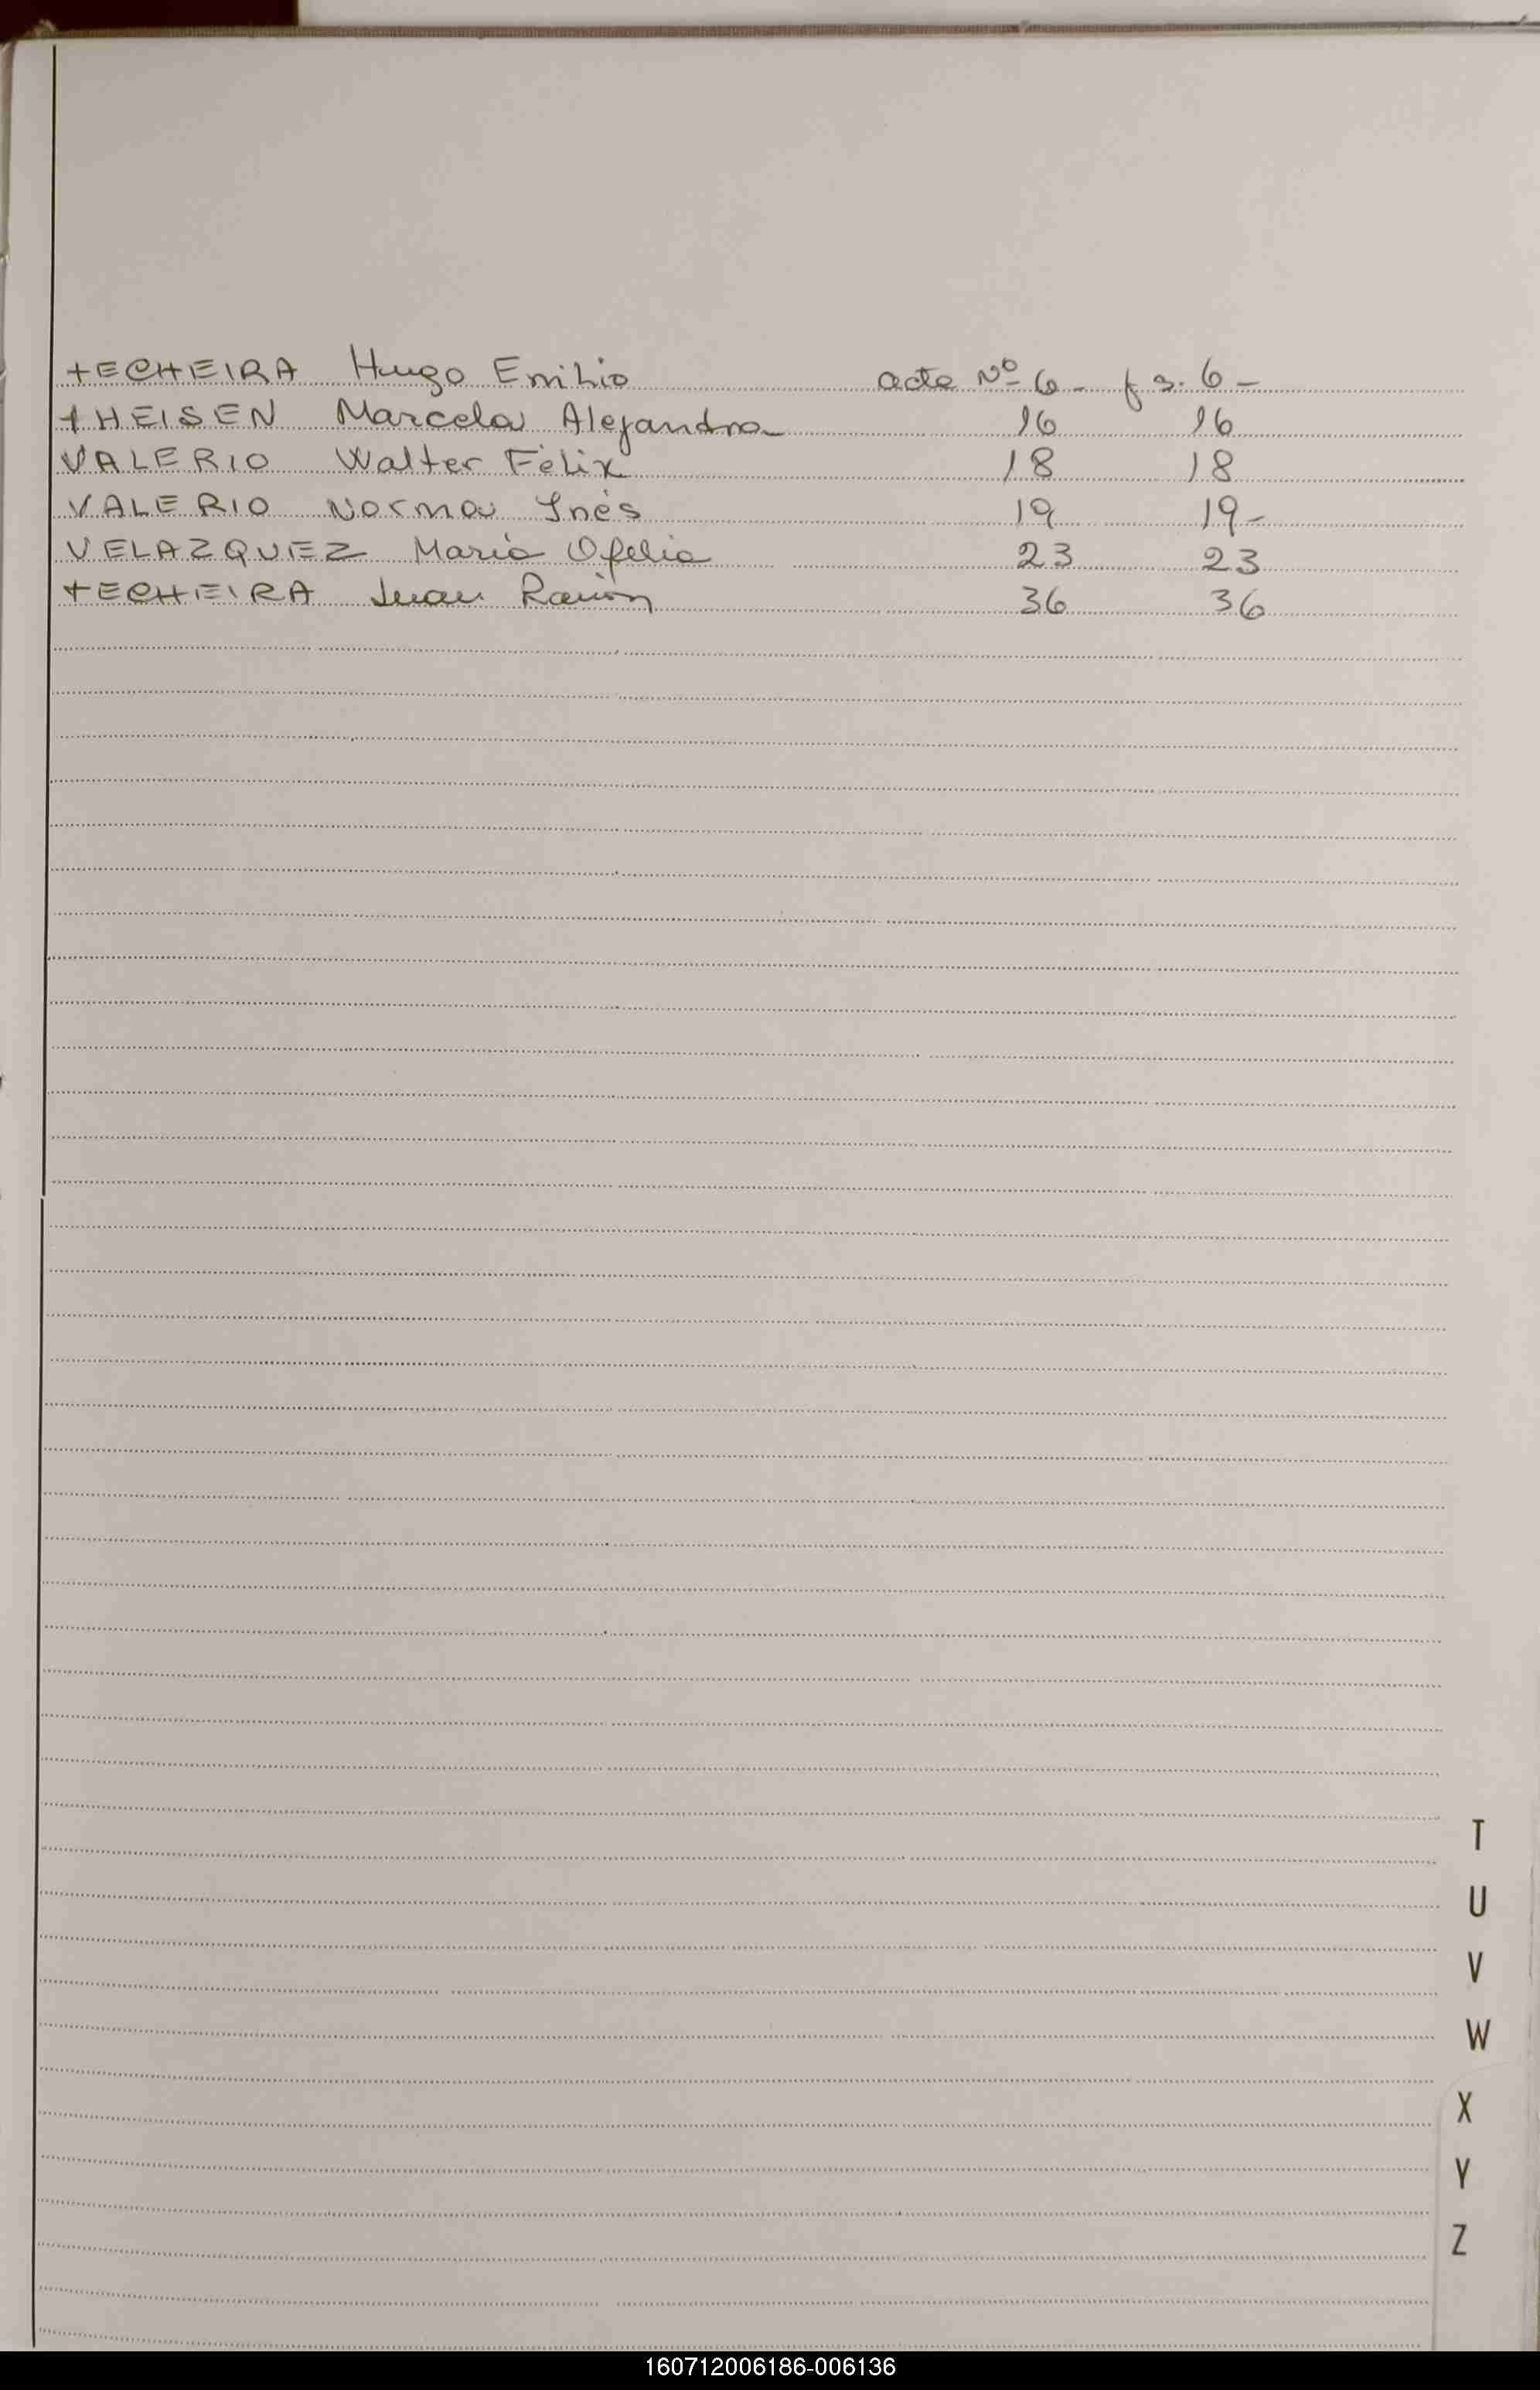 TECHEIRA Hugo Emilio acta Nº 6 - fs. 6 -
THEISEN Marcela Alejandra 16 16
VALERIO Walter Félix 18 18
VALERIO Norma Inés 19 19 -
VELAZQUEZ María Ofelia 23 23
TECHEIRA Juan Ramón 36 36
T
U
V
W
X
Y
Z
160712006186-006136